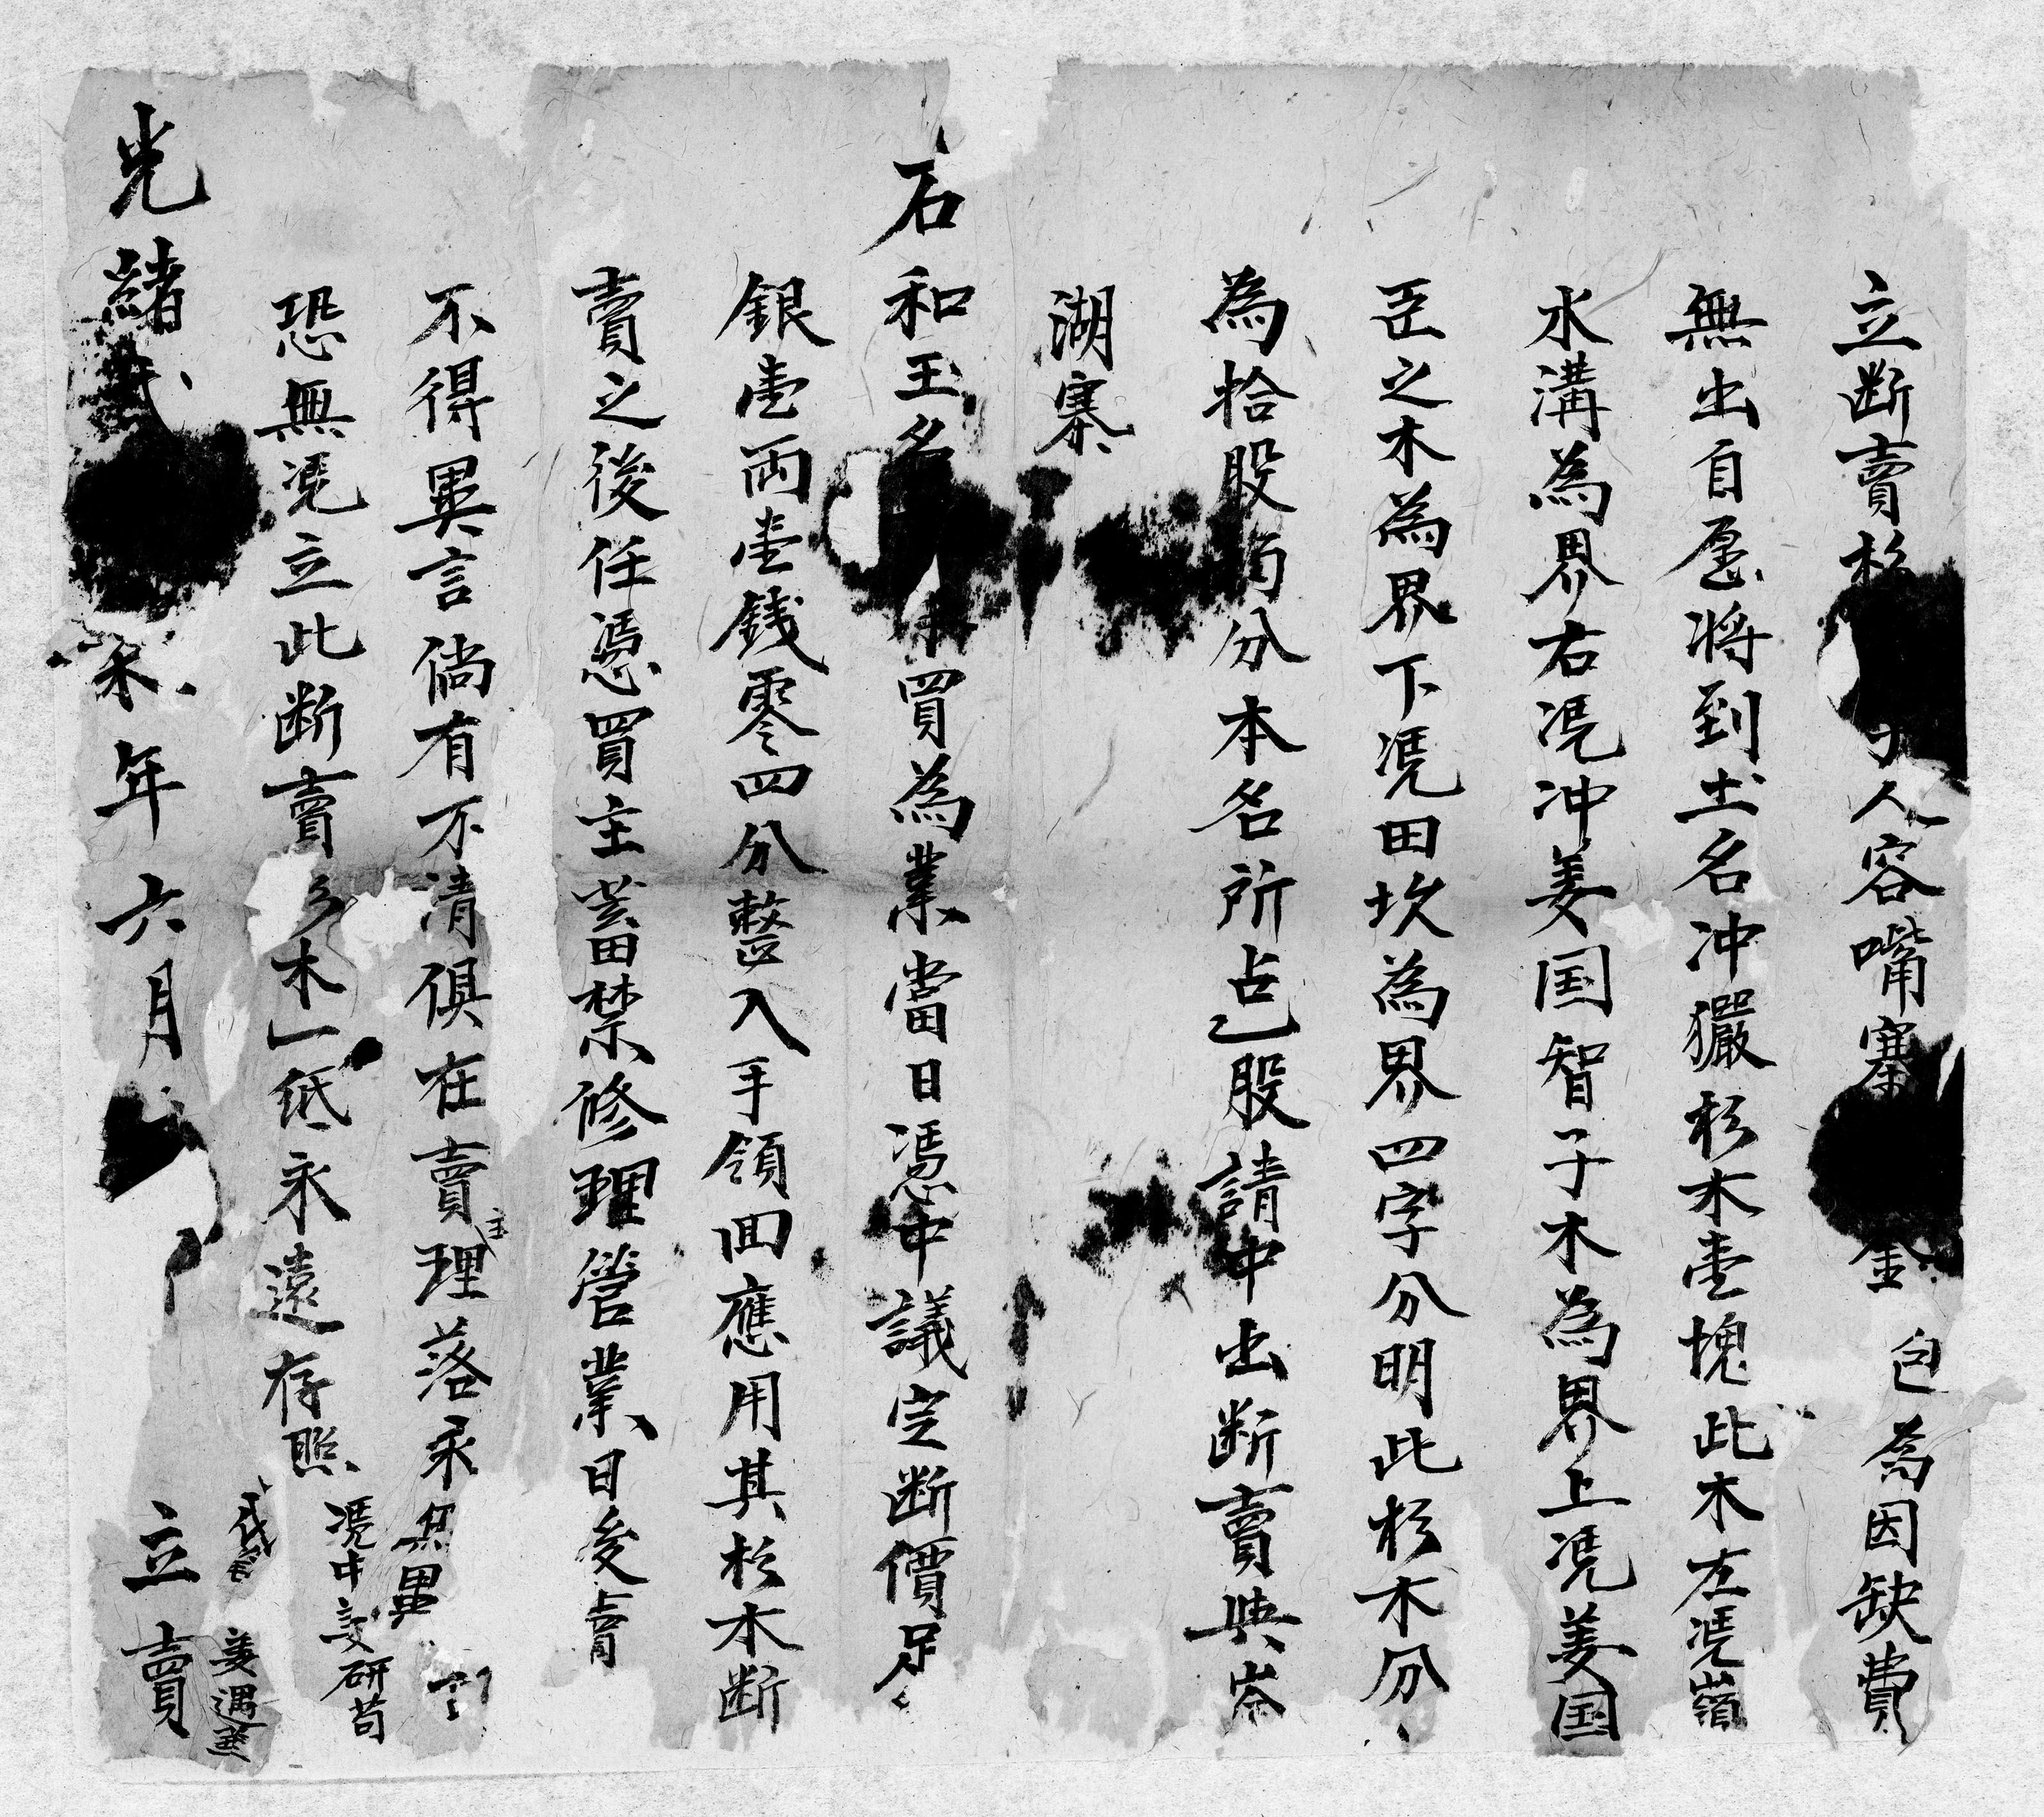 立断賣杉人容嘴寨金包為因缺費
無出自愿将到土名冲玁杉木壹塊此木左凴嶺
水溝為界右凴冲姜国智子木為界上凴姜国
臣之木為界下凴田坎為界四字分明此杉木分
為拾股均分本名所占乙股請中出断賣與岑
湖寨
石和玉名買為業當日憑中議定断價足
銀壹両壹銭零四分整入手領回應用其杉木断
賣之後任憑買主蓄禁修理營業日後賣
不得異言倘有不清俱在賣主理落承無異
恐無凴立此断賣木一纸永遠存照
凴中姜研苟
代筆姜遇
光緒贰年六月立賣